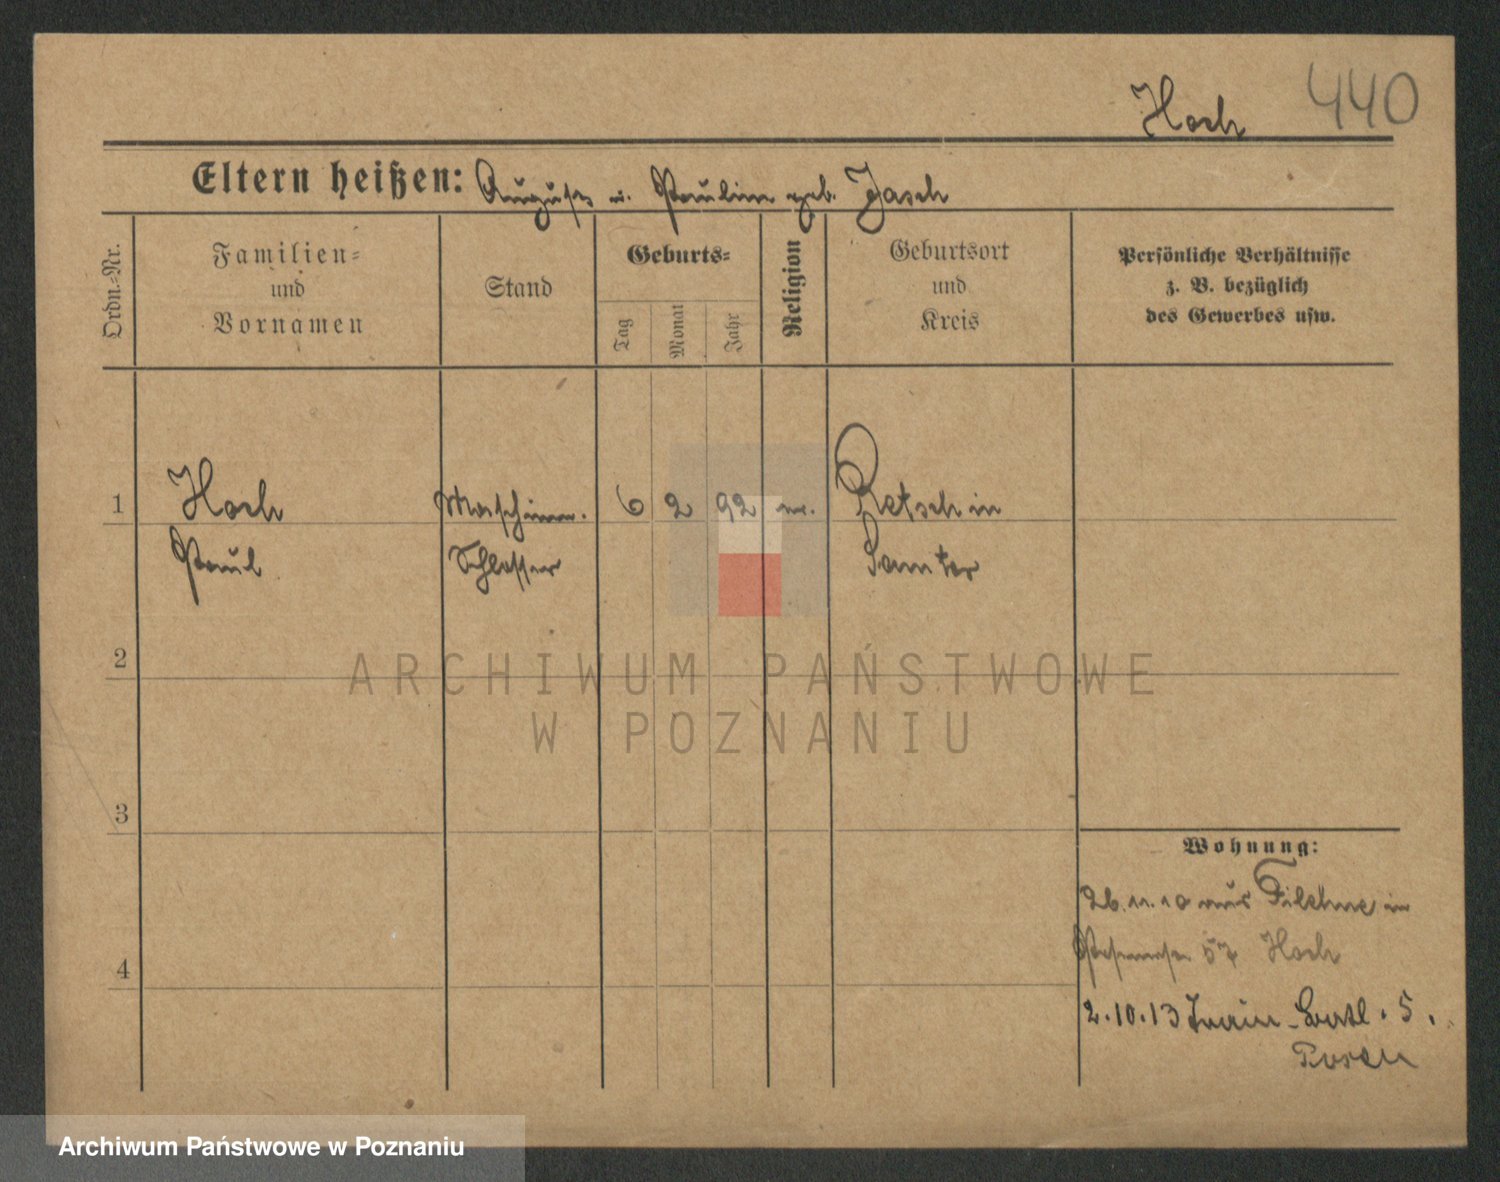 Hoch 440
Eltern heißen: August u. Paulin geb. Jasch
Ordn.-Nr.
Familien-
und
Vornamen
Stand
Geburts-
Tag
Monat
Jahr
Religion
Geburtsort
und
Kreis
Persönliche Verhältnisse
z. B. bezüglich
des Gewerbes usw.
1 Hoch Maschinen. 6 2 92 ev. Retschin
Paul Schlosser Samter
2
3
4
Wohnung:
26.11.10 aus Filehne in
57 Hoch
2.10.13 Train-Batl. 5.
Posen
ARCHIWUM PAŃSTWOWE
W POZNANIU
Archiwum Państwowe w Poznaniu